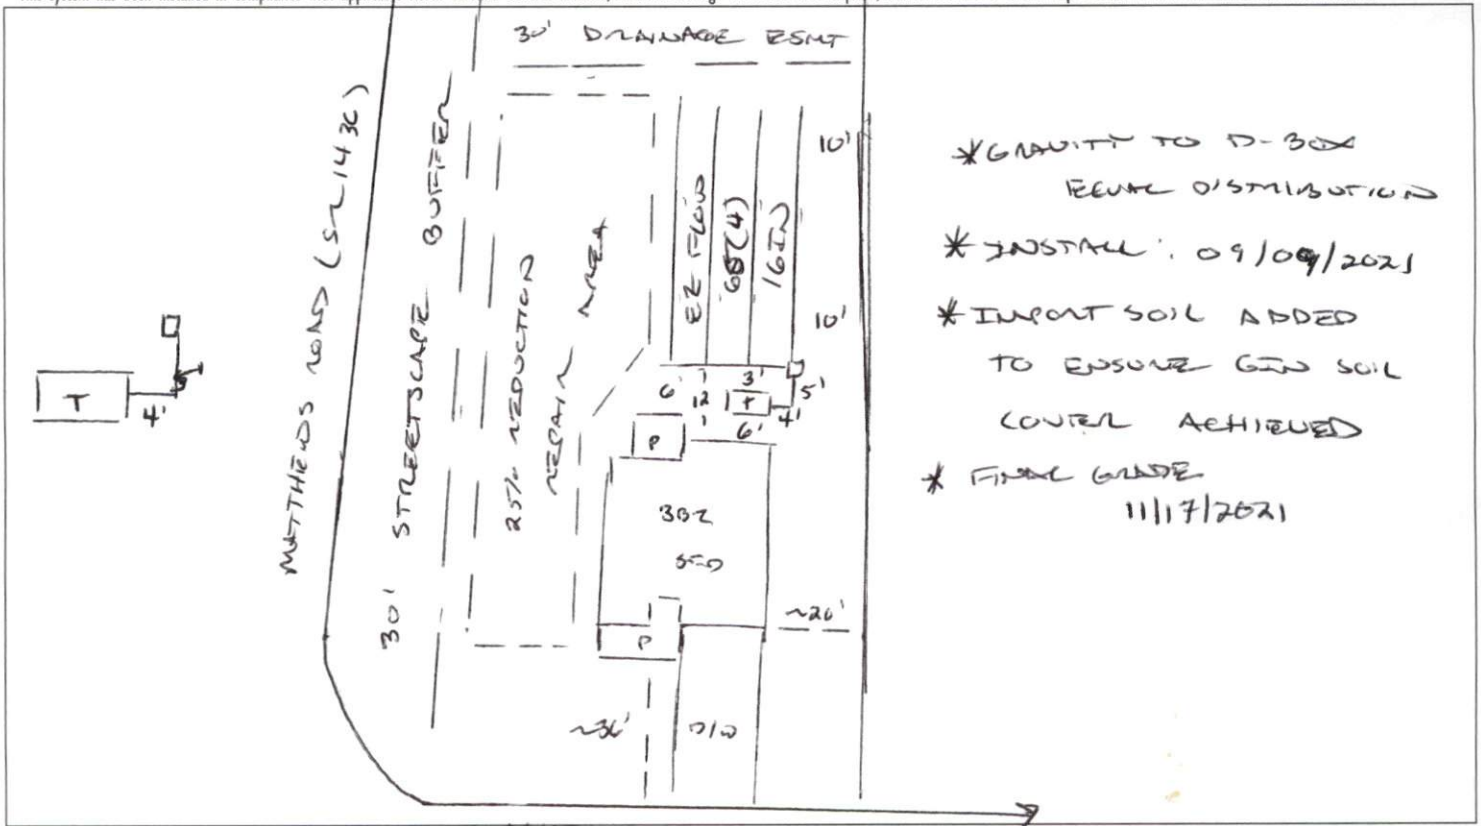 30' DRAINAGE ESMT
MATTHEWS ROAD (SR 1436)
30' STREETSCAPE BUFFER
25% REDUCTION
REPAIR AREA
EZ FLOW
(4)
16IN
10'
10'
6'
12'
3'
5'
T
4'
6'
P
3BR
SFD
P
~20'
~36'
D/W
T
4'
*GRAVITY TO D-BOX
EQUAL DISTRIBUTION
*INSTALL: 09/09/2021
*IMPORT SOIL ADDED
TO ENSURE 6IN SOIL
COVER ACHIEVED
* FINAL GRADE
11/17/2021